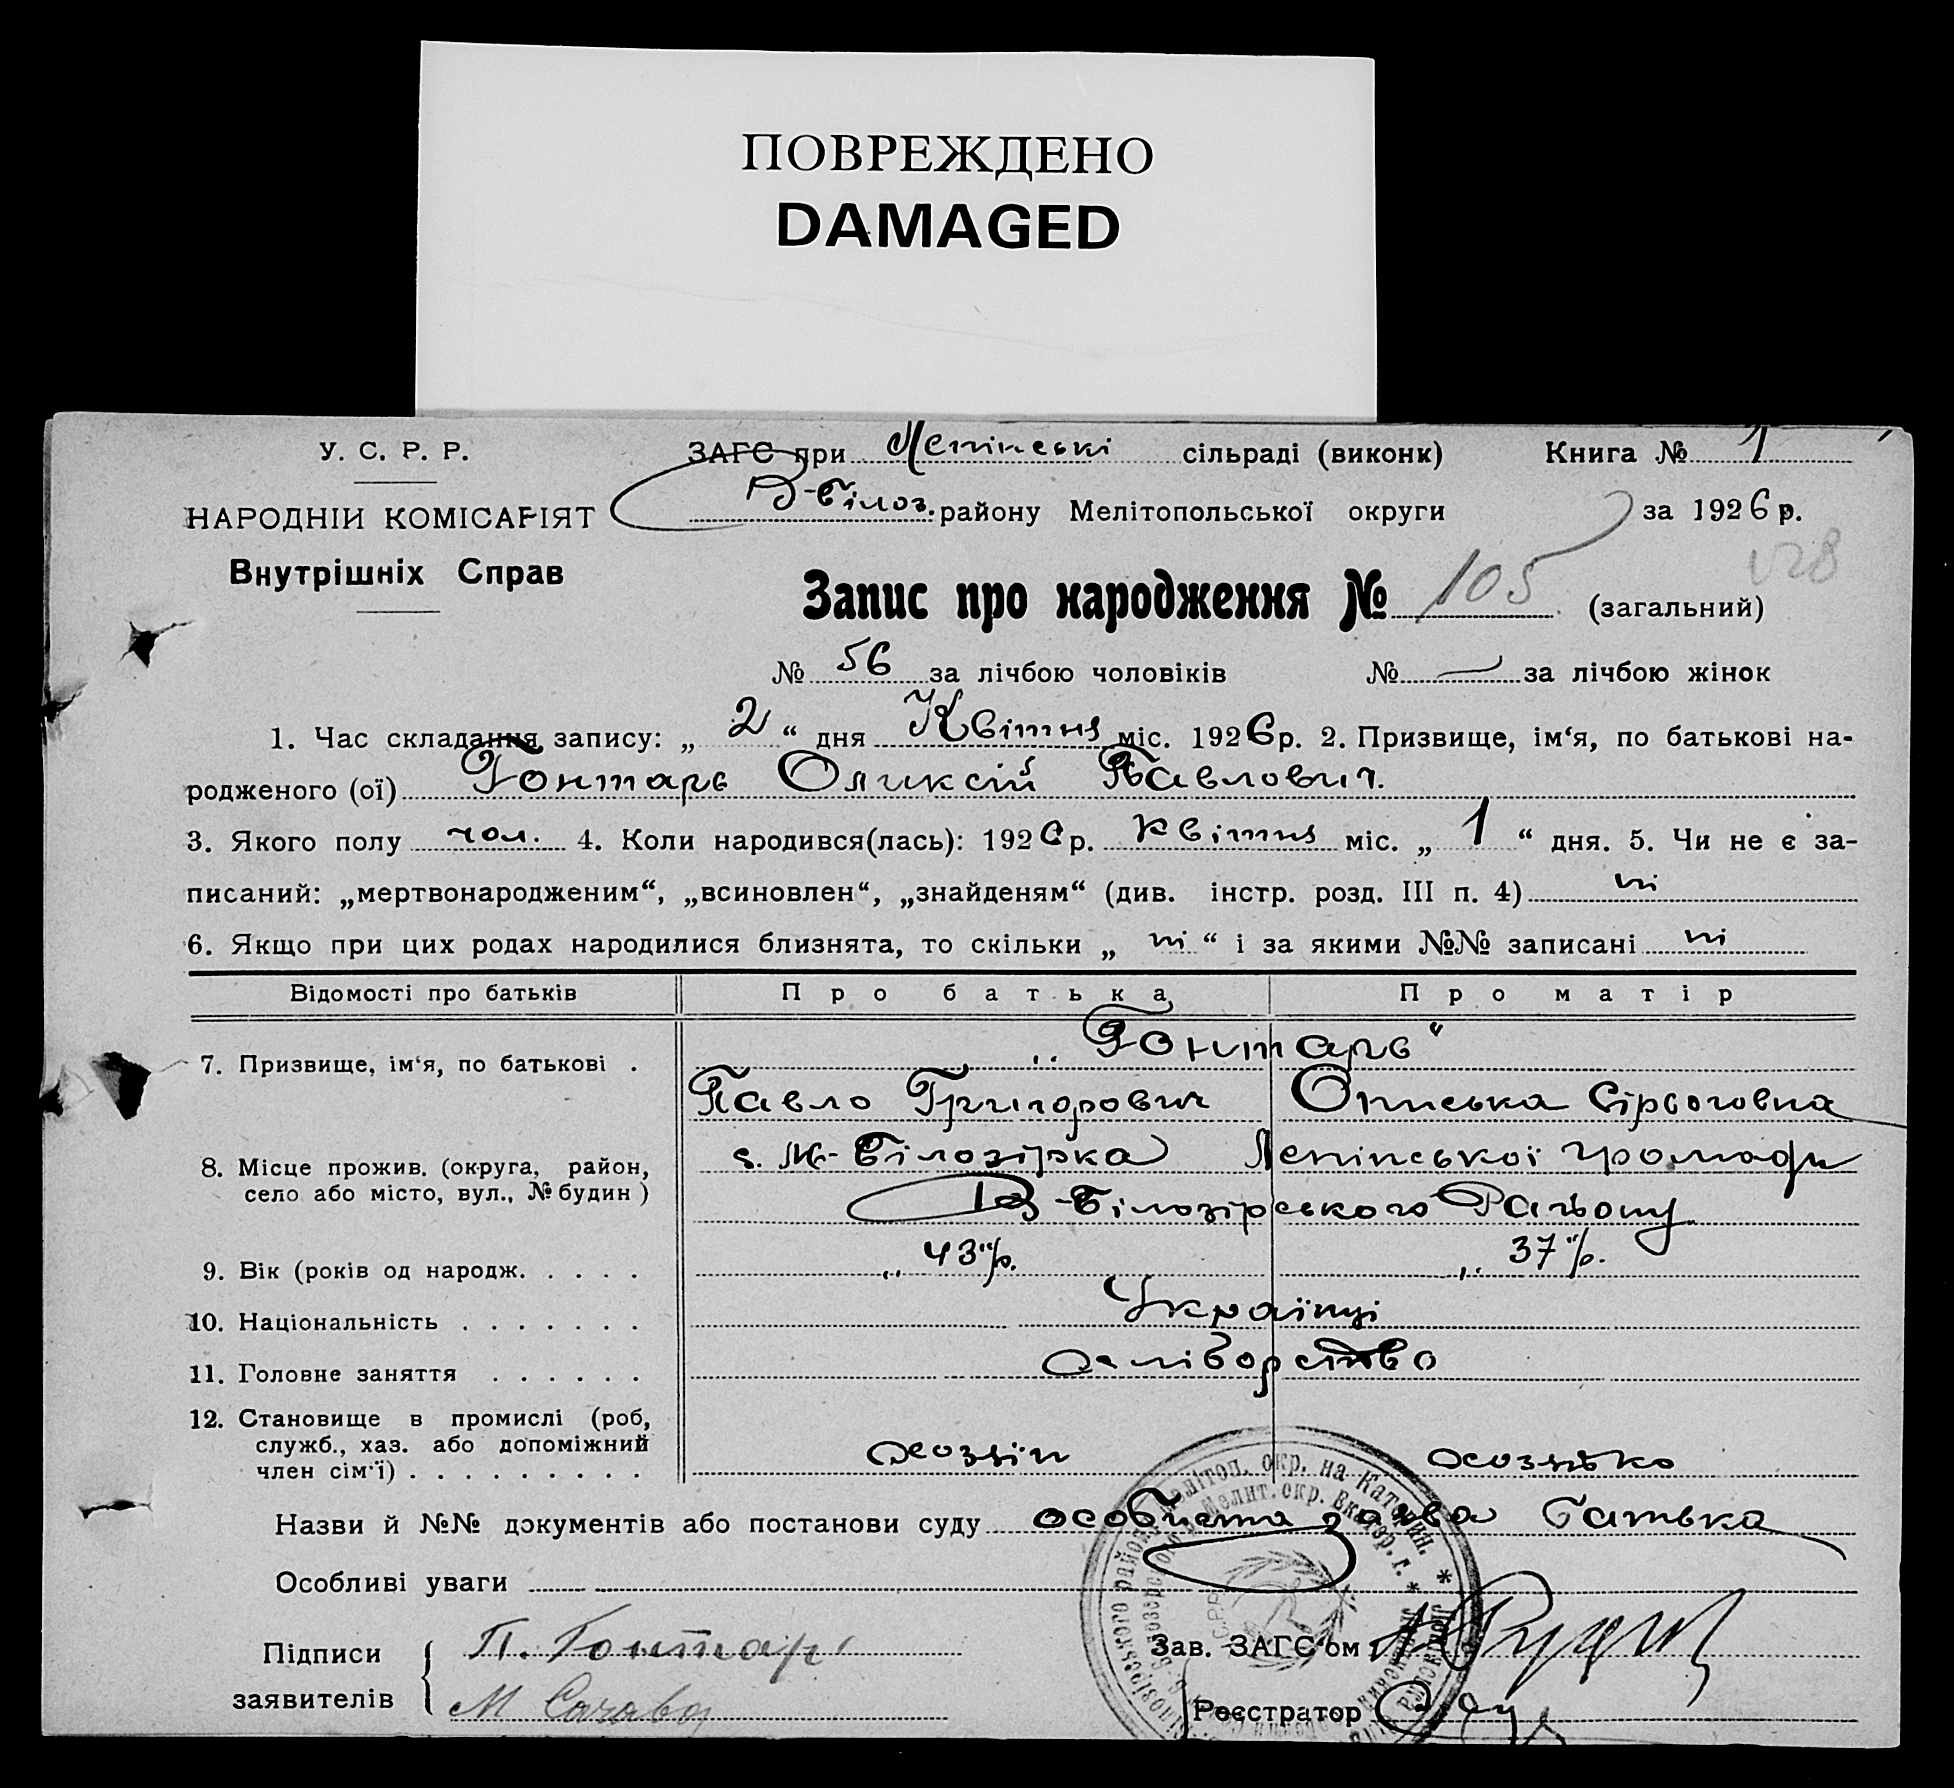 ПОВРЕЖДЕНО
DAMAGED
У. С. Р. Р.
ЗАГС при Ленінські сільраді (виконк) Книга № 1
НАРОДНІЙ КОМІСАРІЯТ
В-Білоз. району Мелітопольської округи за 1926 р.
Внутрішніх Справ
Запис про народження № 105 (загальний)
№ 56 за лічбою чоловіків № — за лічбою жінок
1. Час складання запису: „ 2 “ дня Квітня міс. 1926 р. 2. Призвище, ім‘я, по батькові на-
родженого (ої) Гонтарь Оликсій Павлович.
3. Якого полу чол. 4. Коли народився(лась): 1926 р. квітня міс. „ 1 “ дня. 5. Чи не є за-
писаний: „мертвонародженим“, „всиновлен“, „знайденям“ (див. інстр. розд. III п. 4) ні
6. Якщо при цих родах народилися близнята, то скільки „ ні “ і за якими №№ записані ні
Відомості про батьків Про батька Про матір
7. Призвище, ім‘я, по батькові . „Гонтарь“
Павло Григорович Ониська Сірьоговна
8. Місце прожив. (округа, район, село або місто, вул., № будин) с. М-Білозірка Ленінської громади
В-Білозірського Райьону
9. Вік (років од народж. . . . . „43“ р. „37“ р.
10. Національність . . . . . . . Українці
11. Головне заняття . . . . . . хліборство
12. Становище в промислі (роб,
служб., хаз. або допоміжний
член сім‘ї) . . . . . . . . . хозяїн хозяйко
Назви й №№ документів або постанови суду особиста заява батька
Особливі уваги
Підписи
заявителів
П. Гонтарь
Зав. ЗАГС‘ом
Реєстратор